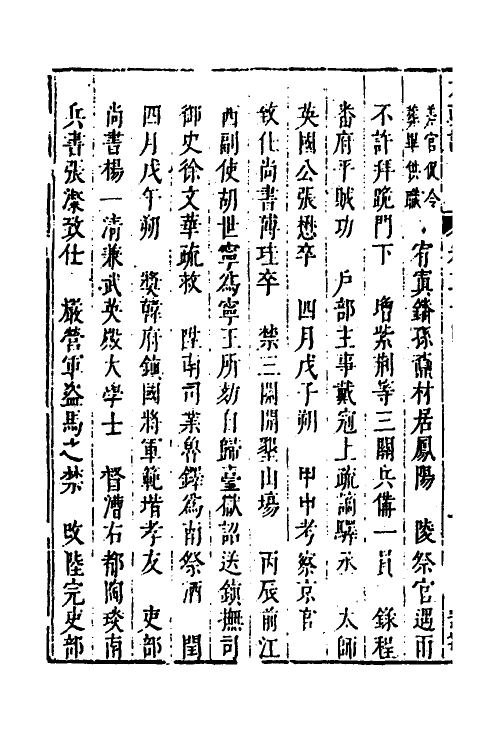 差官促令
葬畢供職　宥寘鐇孫鼒材居鳳陽　陵祭官遇雨
不許拜跪門下　增紫荆等三關兵備一員　錄程
番府平賊功　戶部主事戴冠上疏謫驛丞　太師
英國公張懋卒　四月戊子朔　甲申考察京官
致仕尚書傅珪卒　禁三關開墾山場　丙辰前江
西副使胡世寧爲寧王所劾自歸臺獄詔送鎮撫司
御史徐文華疏救　陞南司業魯鐸爲南祭酒　閏
四月戊午朔　奬韓府鎮國將軍範堦孝友　吏部
尚書楊一清兼武英殿大學士　督漕右都陶琰南
兵書張澯致仕　嚴營軍盜馬之禁　改陸完吏部